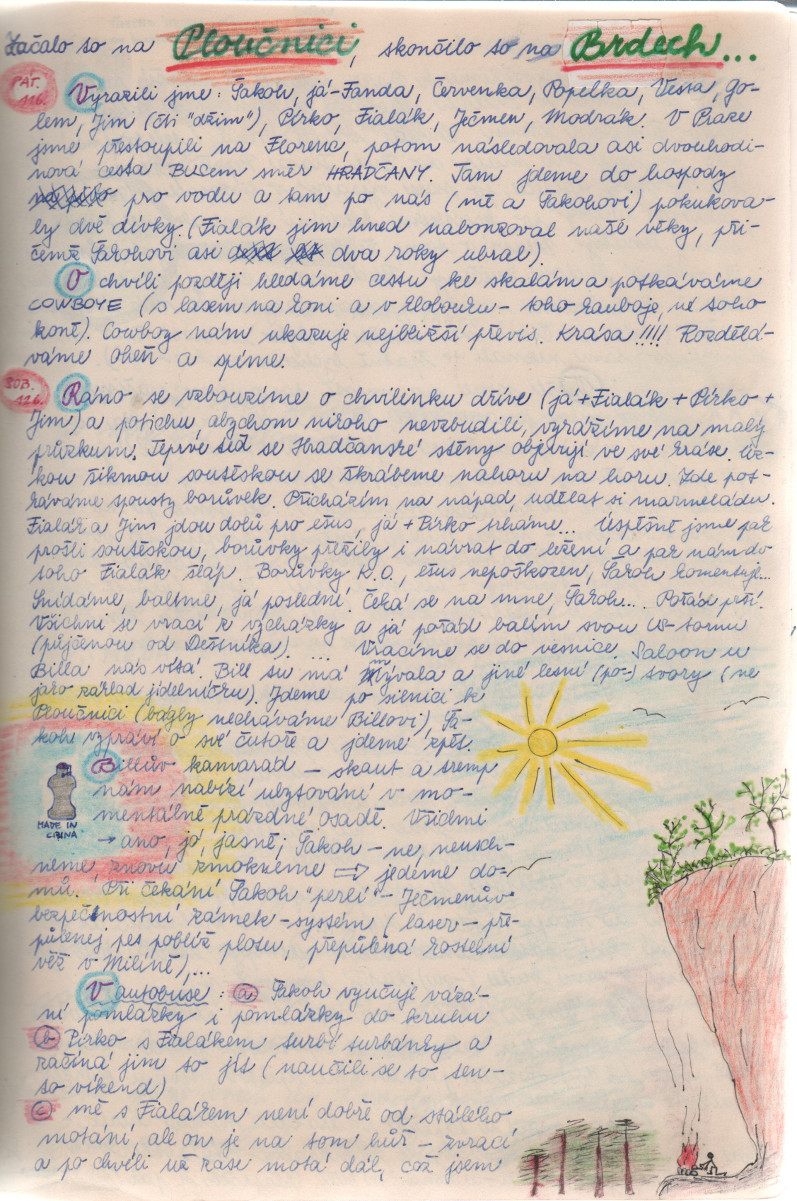 Začalo to na Ploučnici, skončilo to na Brdech...
PÁT. 11.6. Vyrazili jme: Ťakoh, já-Fanda, Červenka, Popelka, Vessa, Go-
lem, Jim (čti "džim"), Pírko, Fialák, Ječmen, Modrák. V Praze
jsme přestoupili na Florenc, potom následovala asi dvouhodi-
nová cesta BUSem směr HRADČANY. Tam jdeme do hospody
pro vodu a tam po nás (mě a Ťakohovi) pokukova-
ly dvě dívky. (Fialák jim hned nabonzoval naše věky, při-
čemž Ťakohovi asi dva roky ubral).
O chvíli později hledáme cestu ke skalám a potkáváme
COWBOYE (s lasem na koni a v klobouku - toho kauboje, né toho
koně). Cowboy nám ukazuje nejbližší převis. Krása !!!! Rozdělá-
váme oheň a spíme.
SOB. 12.6. Ráno se vzbouzíme o chvilinku dříve (já + Fialák + Pírko +
Jim) a potichu, abychom nikoho nevzbudili, vyrážíme na malý
průzkum. Teprve teď se Hradčanské stěny objevují ve své kráse. Úz-
kou šikmou soutěskou se škrábeme nahoru na horu. Zde pot-
káváme spousty borůvek. Přicházím na nápad, udělat si marmeládu.
Fialák a Jim jdou dolů pro ešus, já + Pírko trháme... Úspěšně jsme pak
prošli soutěskou, borůvky přežily i návrat do ležení a pak nám do
toho Fialák šláp. Borůvky K.O., ešus nepoškozen, Ťakoh komentuje...
Snídáme, balíme, já poslední. Čeká se na mne, Ťakoh... Pořád prší.
Všichni se vrací z vycházky a já pořád balím svou US-tornu
(půjčenou od Deštníka). ... Vracíme se do vesnice. Saloon u
Billa nás vítá. Bill tu má Mývala a jiné lesní (po-) tvory (ne
jako základ jídelníčku). Jdeme po silnici k
Ploučnici (bágly necháváme Billovi), Ťa-
koh vypráví o své čutoře a jdeme zpět.
Billův kamarád - skaut a tremp
nám nabízí ubytování v mo-
mentálně prázdné osadě. Všichni
MADE IN
CHINA
→ ano, já, jasně; Ťakoh - ne, neusch-
neme, znovu zmokneme ⇒ jedeme do-
mů. Při čekání Ťakoh "perlí" - Ječmenův
bezpečnostní zámek-systém (laser - při-
půlenej pes poblíž plotu, přepůlená kostelní
věž v Milíně),...
V autobuse: a Ťakoh vyučuje vázá-
ní pomlázky i pomlázky do kruhu
b Pírko s Fialákem turbí turbánky a
začíná jim to jít (naučili se to ten-
to víkend)
c mě s Fialákem není dobře od stálého
motání, ale on je na tom hůř - zvrací
a po chvíli už zase motá dál, což jsem